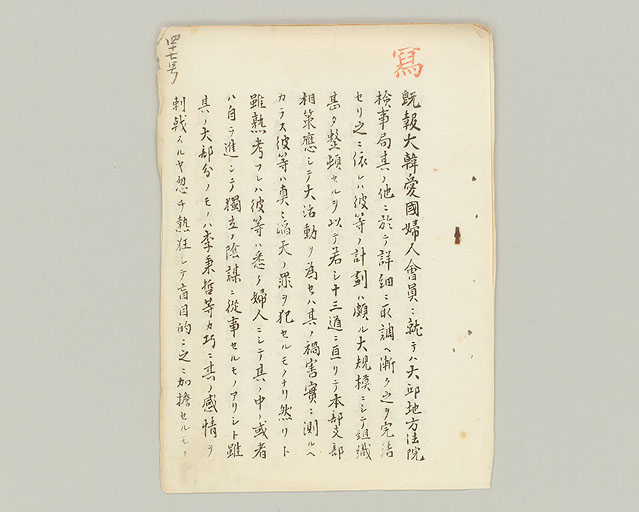 寫
既報大韓愛國婦人會員ニ就テハ大邱地方法院
検事局其ノ他ニ於テ詳細ニ取調ヘ漸ク之ヲ完結
セリ之ニ依レハ彼等ノ計劃ハ頗ル大規模ニシテ組織
甚タ整頓セルヲ以テ若シ十三道ニ亘リテ本部支部
相策應シテ大活動ヲ為セハ其ノ禍害實ニ測ルヘ
カラス彼等ハ真ニ滔天ノ罪ヲ犯セルモノナリ然リト
雖熟考フレハ彼等ハ悉ク婦人ニシテ其ノ中ノ或者
ハ自ラ進ンテ獨立ノ陰謀ニ從事セルモノアリシト雖
其ノ大部分ノモノハ李秉哲等カ巧ニ其ノ感情ヲ
刺戟スルヤ忽チ熱狂シテ盲目的ニ之ニ加擔セルモノ
四十七号